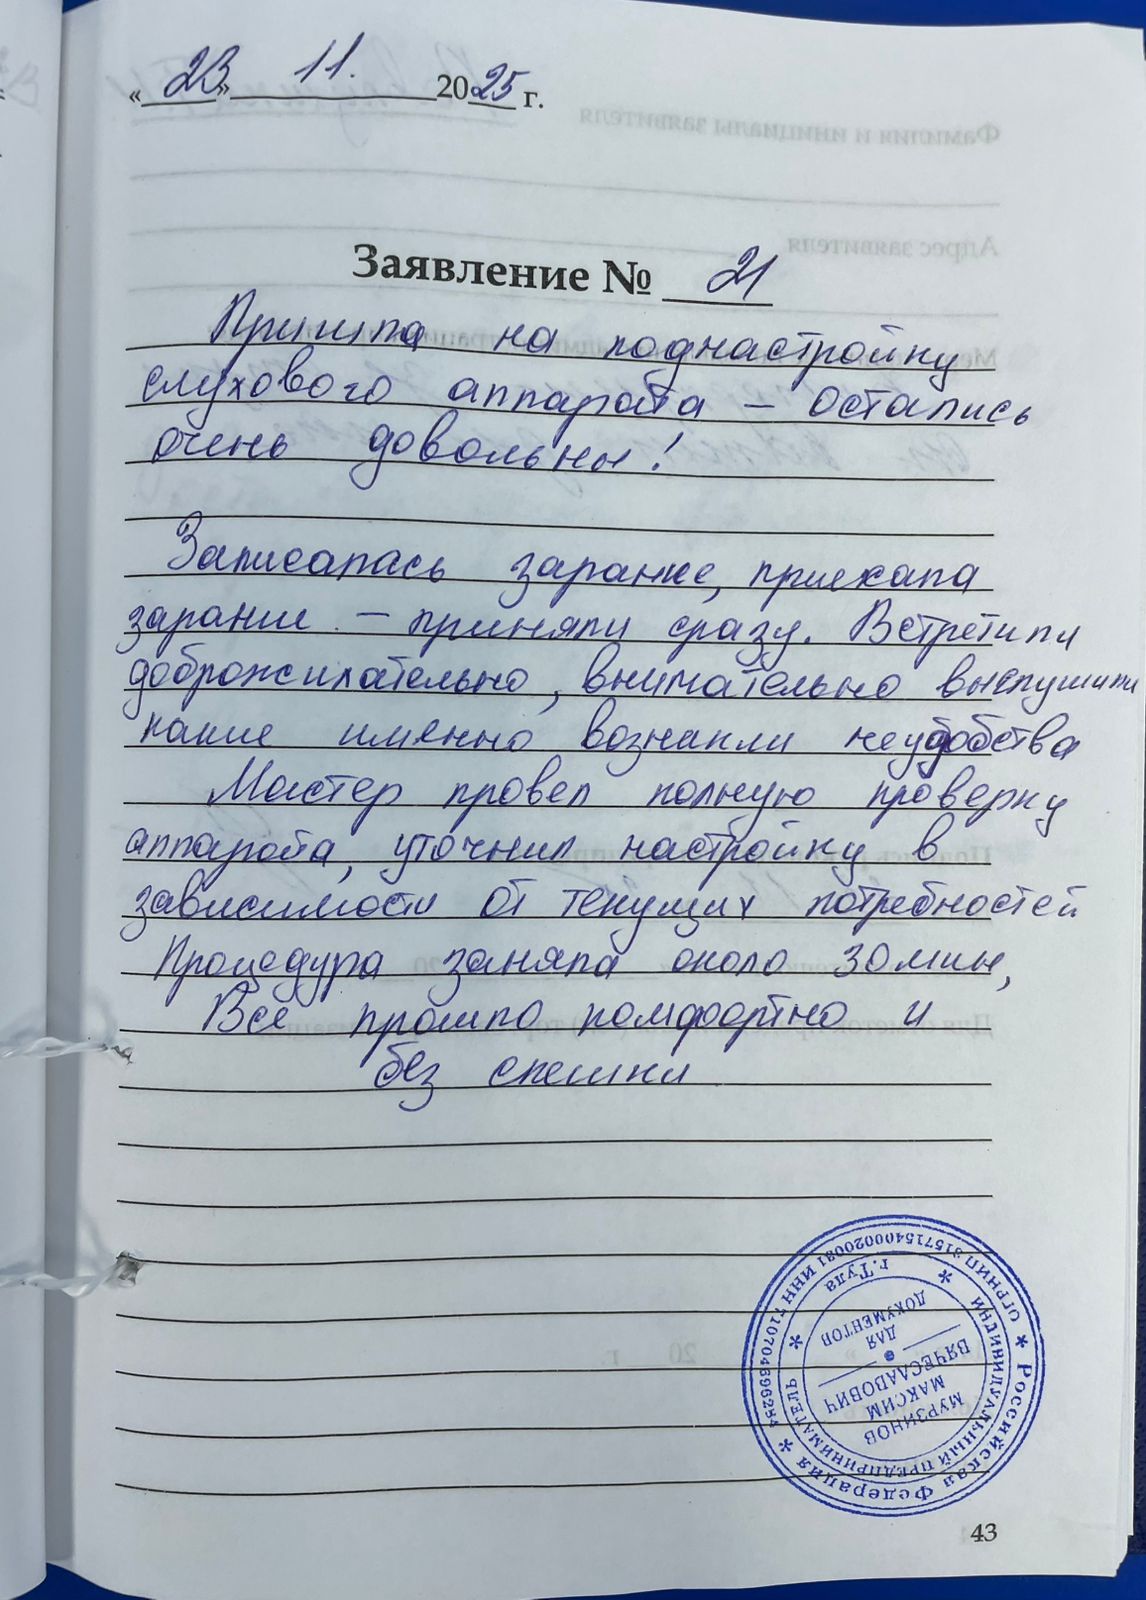 « 23 » 11. 2025 г.
Заявление № 21
Пришла на поднастройку
слухового аппарата – остались
очень довольны!
Записалась заранее, приехала
зарание – приняли сразу. Встретили
доброжилательно, внимательно выслушили
какие именно возникли неудобства
Мастер провел полную проверку
аппарата, уточнил настройку в
зависимости от текущих потребностей
Процедура заняла около 30 мин,
Все прошло комфортно и
без спешки
* Российская Федерация *
ОГРНИП 315715400020081 ИНН 710704696284
ИНДИВИДУАЛЬНЫЙ ПРЕДПРИНИМАТЕЛЬ
* г.Тула *
МУРЗИНОВ
МАКСИМ
ВЯЧЕСЛАВОВИЧ
ДЛЯ
ДОКУМЕНТОВ
43
Фамилия и инициалы заявителя
Адрес заявителя